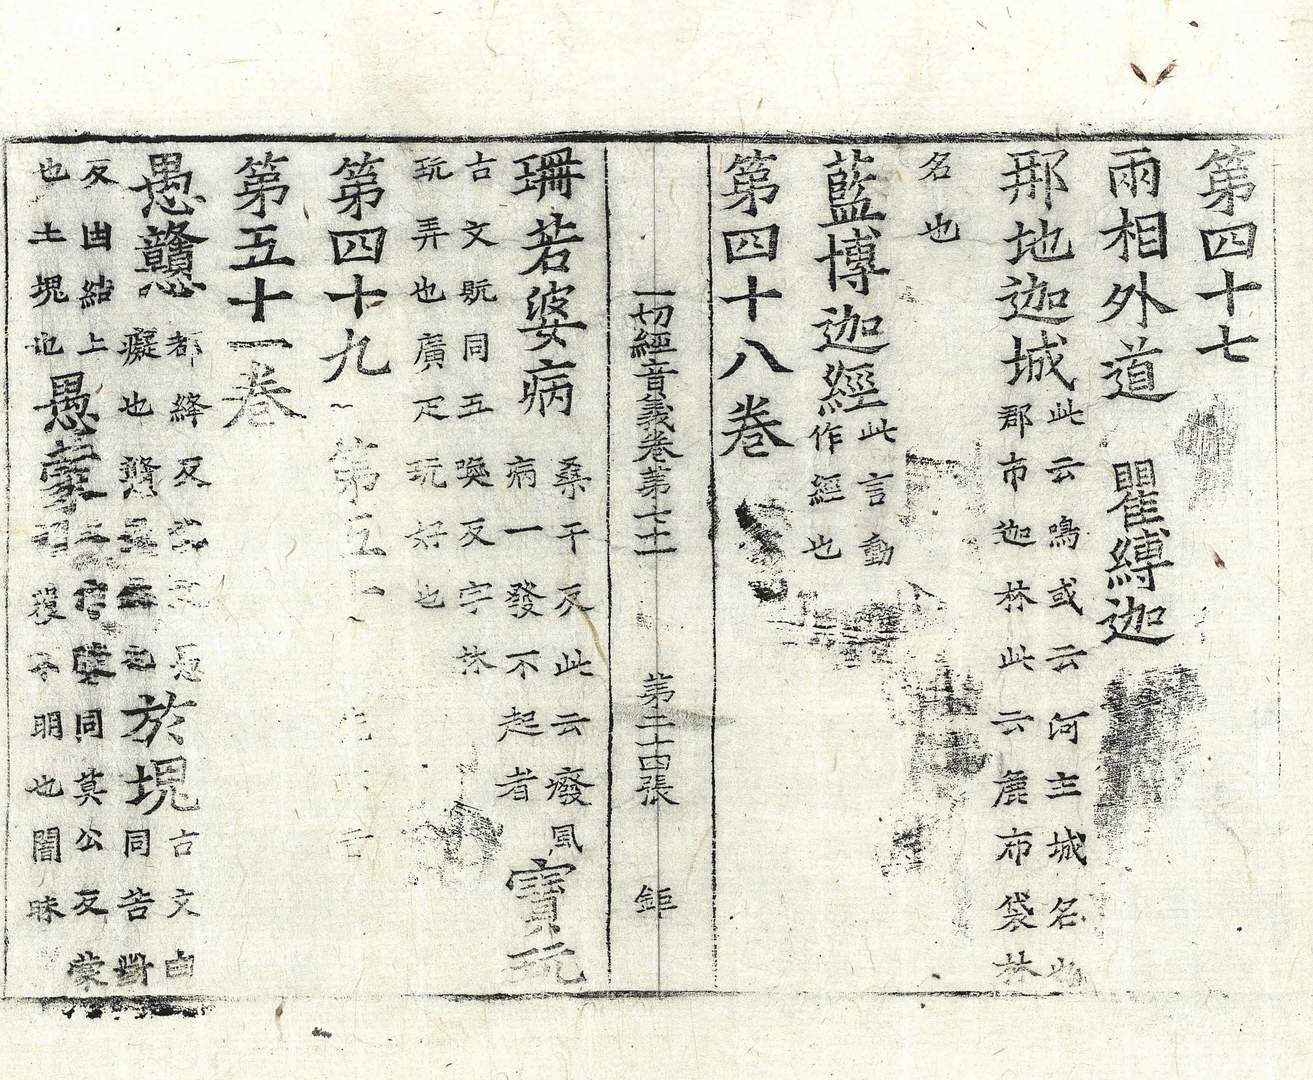 第四十七
雨相外道　瞿縛迦
那地迦城此云鳴或云河主城名也
郡市迦林此云麁布袋林
名也
藍博迦經此言動
作經也
第四十八卷
一切經音義卷第七十一　第二十四張　鉅
珊若婆病桑干反此云癈風
病一發不起者寶玩
古文貦同五喚反字林
玩弄也廣疋玩好也
第四十九　第五十
第五十一卷
愚戇都絳反
癡也戇愚也於堁古文凷
同苦對
反凷結上也土塊也愚蒙
同莫公反蒙
明也闇昧